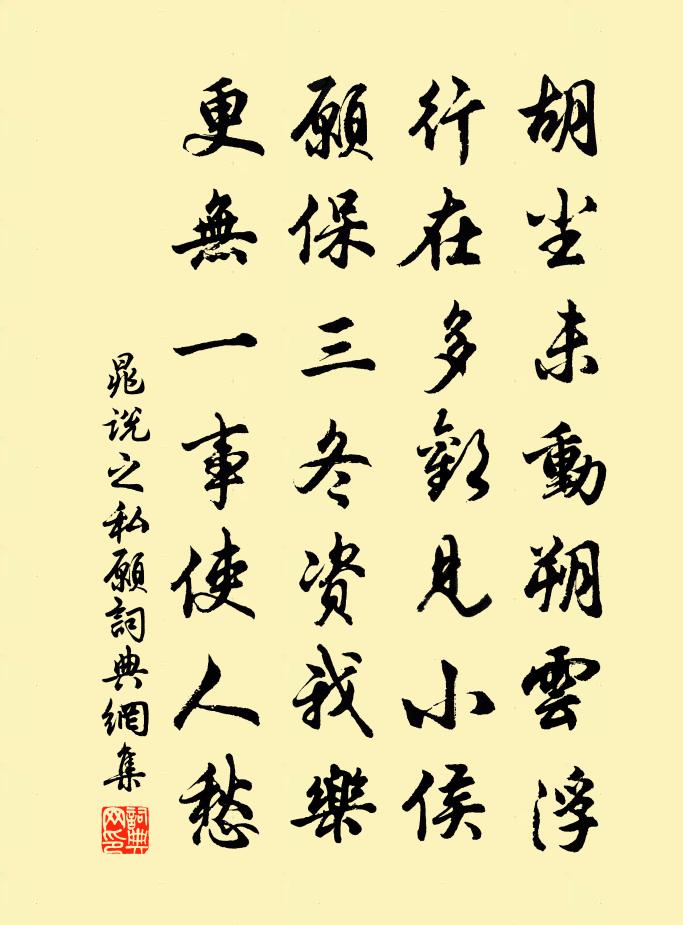 胡塵未動朔雲浮
行在多歡見小侯
願保三冬資我樂
更無一事使人愁
晁說之私願詞典網集
詞典网印